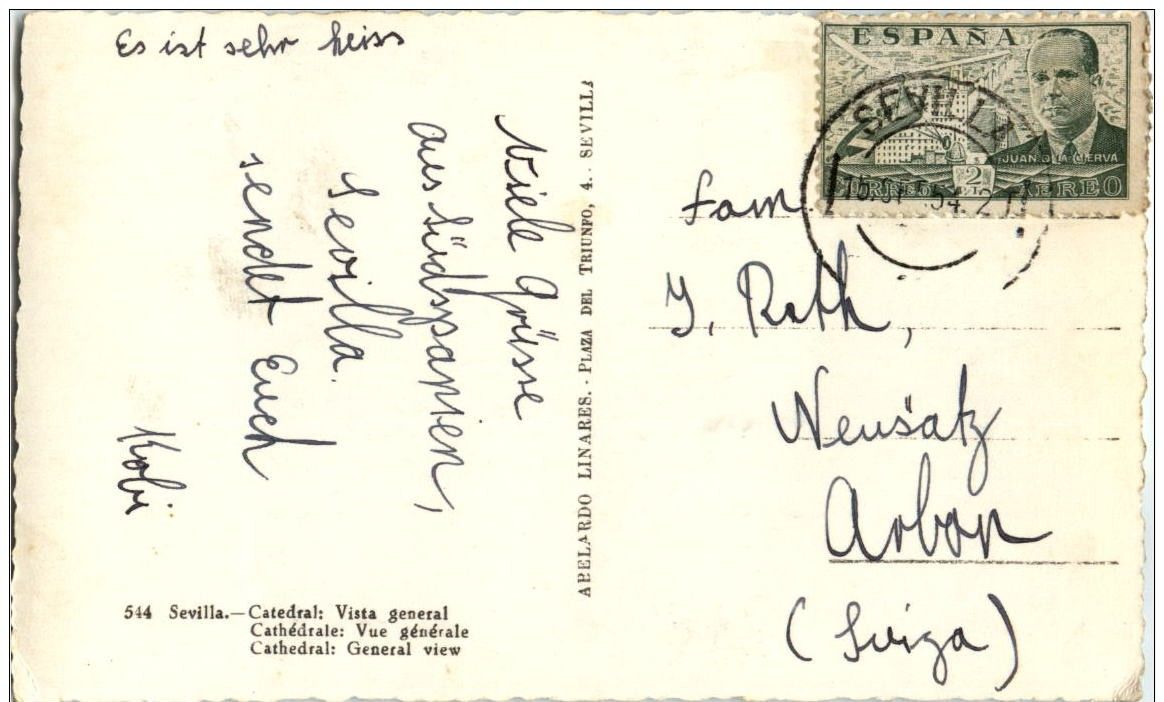 Es ist sehr heiss
Viele Grüsse
aus Südspanien,
Sevilla.
sendet Euch
Kobi
544 Sevilla.—Catedral: Vista general
Cathédrale: Vue générale
Cathedral: General view
ABELARDO LINARES. - PLAZA DEL TRIUNFO, 4. - SEVILLA
ESPAÑA
JUAN DE LA CIERVA
2 PTS
CORREO AEREO
SEVILLA
Fam.
J. Roth,
Neusatz
Arbon
(Suiza)